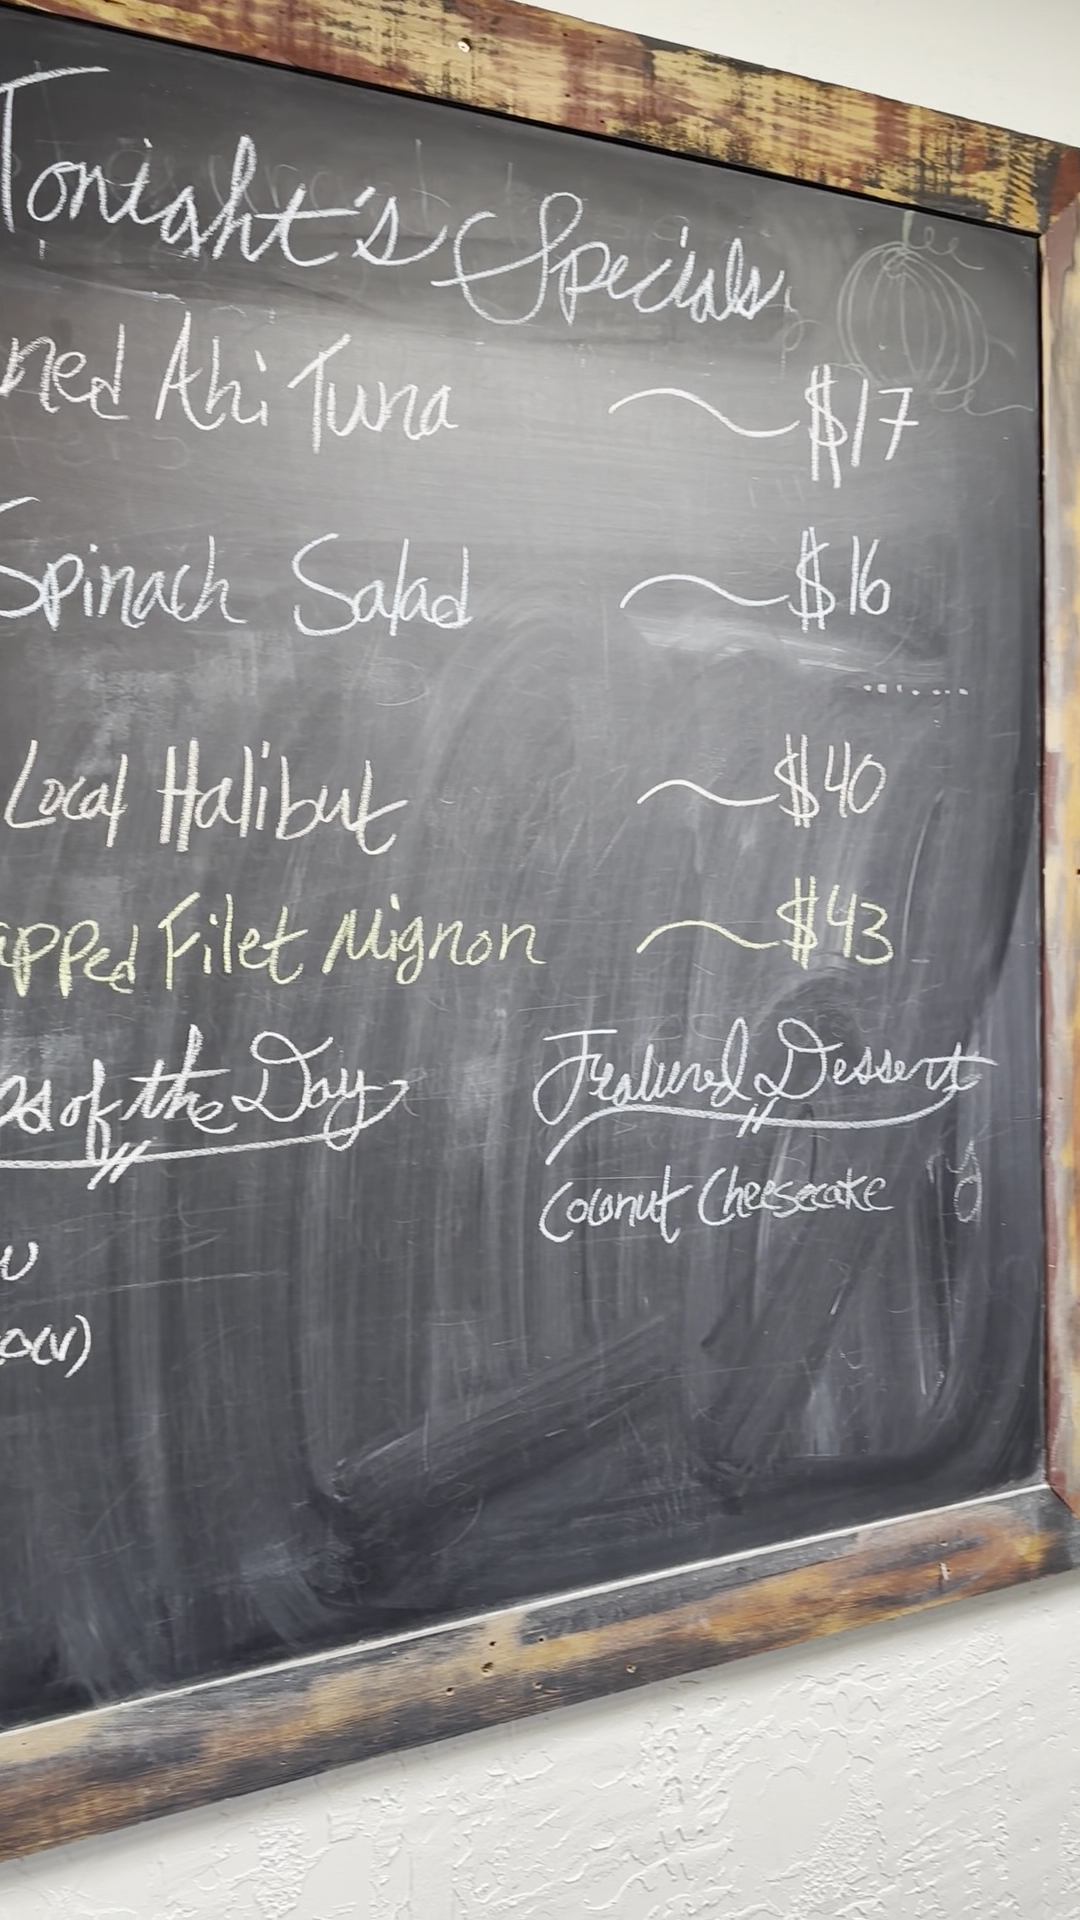 Tonight's Specials
ned Ahi Tuna ~ $17
Spinach Salad ~ $16
Local Halibut ~ $40
apped Filet Mignon ~ $43
of the Day
Featured Dessert
Coconut Cheesecake